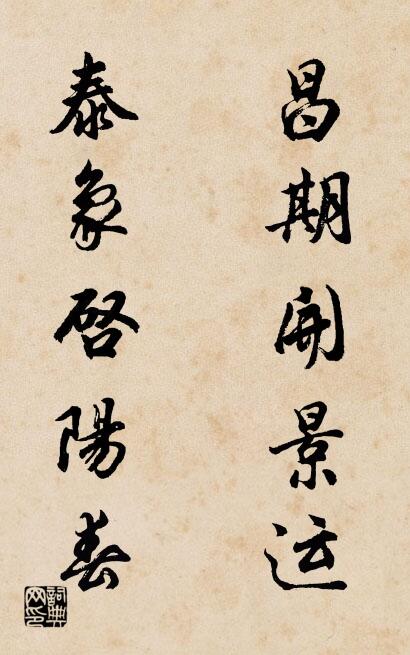 昌期開景运
泰象啓陽春
詞典网印